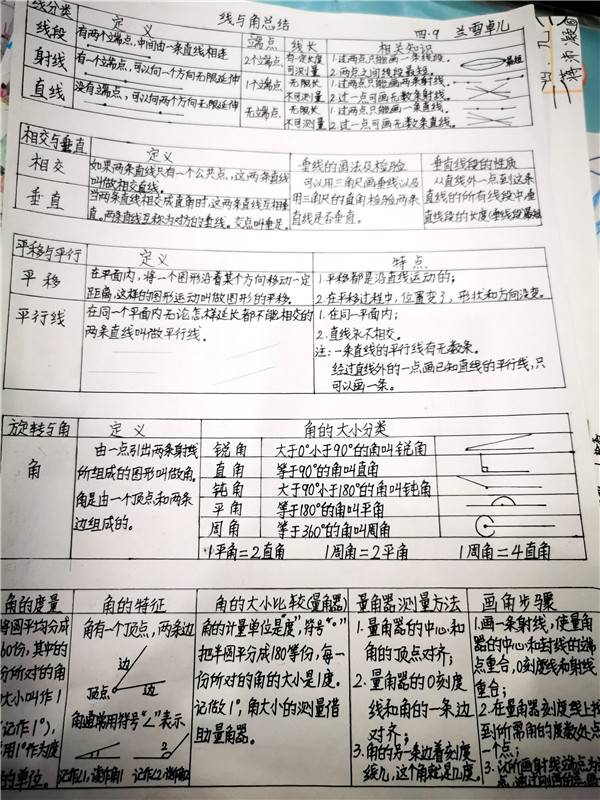 线与角总结 四·9 兰雪卓儿
线分类 定义 端点 线长 相关知识
线段 有两个端点,中间由一条直线相连 2个端点 有一定长度 可测量 1.过两点只能画一条线段。
2.两点之间线段最短。 最短
射线 有一个端点,可以向一个方向无限延伸 1个端点 无限长 不可测量 1.过两点只能画两条射线。
2.过一点可画无数条射线。
直线 没有端点,可以向两个方向无限延伸 无端点 无限长 不可测量 1.过两点只能画一条直线。
2.过一点可画无数条直线。
相交与垂直 定义 垂线的画法及检验 垂直线段的性质
相交 如果两条直线只有一个公共点,这两条直线
叫做相交直线。
垂直 当两条直线相交成直角时,这两条直线互相垂
直。两条直线互称为对方的垂线。交点叫垂足。
可以用三角尺画垂线以及
用三角尺的直角检验两条
直线是否垂直。
从直线外一点到这条
直线的所有线段中,垂
直线段的长度(垂线段)最短
平移与平行 定义 特点
平移 在平面内,将一个图形沿着某个方向移动一定
距离,这样的图形运动叫做图形的平移。
1.平移都是沿直线运动的;
2.在平移过程中,位置变了,形状和方向没变。
平行线 在同一个平面内无论怎样延长都不能相交的
两条直线叫做平行线。
1.在同一平面内;
2.直线永不相交。
注:一条直线的平行线有无数条。
经过直线外的一点画已知直线的平行线,只
可以画一条。
旋转与角 定义 角的大小分类
角 由一点引出两条射线
所组成的图形叫做角。
角是由一个顶点和两条
边组成的。
锐角 大于0°小于90°的角叫锐角
直角 等于90°的角叫直角
钝角 大于90°小于180°的角叫钝角
平角 等于180°的角叫平角
周角 等于360°的角叫周角
1平角=2直角 1周角=2平角 1周角=4直角
角的度量 角的特征 角的大小比较(量角器) 量角器测量方法 画角步骤
将圆平均分成
60份,其中的
分所对的角
大小叫作1
记作1°),
用1°作为度
的单位。
角有一个顶点,两条边
边
顶点 边
角通常用符号“∠”表示
1 2
记作∠1,读作角1 记作∠2,读作角2
角的计量单位是“度”,符号“°”
把半圆平分成180等份,每一
份所对的角的大小是1度。
记做1°,角大小的测量借
助量角器。
1.量角器的中心和
角的顶点对齐;
2.量角器的0刻度
线和角的一条边
对齐;
3.角的另一条边着刻度
线几,这个角就是几度。
1.画一条射线,使量角
器的中心和射线的端
点重合,0刻度线和射线
重合;
2.在量角器刻度线上找
到所需角的度数处点
一个点;
3.以所画射线端点为